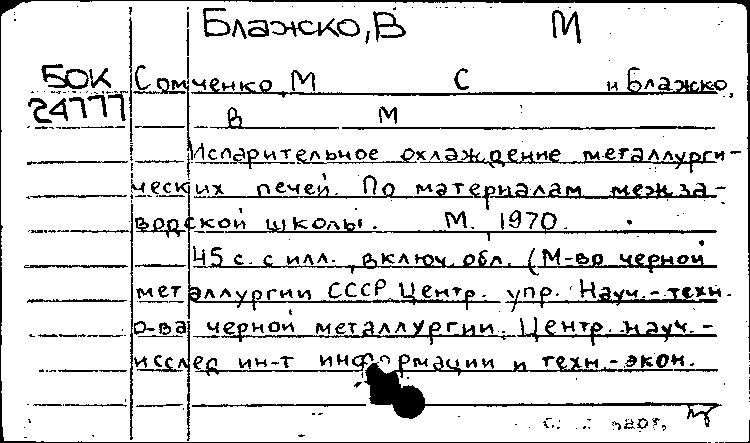 Блажско, В М
БОК Сомченко, М С и Блажко,
24777 В М
Испарительное охлаждение металлурги-
ческих печей. По материалам межза-
водской школы. М., 1970.
45 с. с илл., включ. обл. (М-во черной
металлургии СССР. Центр. упр. Науч.-техн.
о-ва черной металлургии. Центр. науч.-
исслед ин-т информации и техн.-экон.